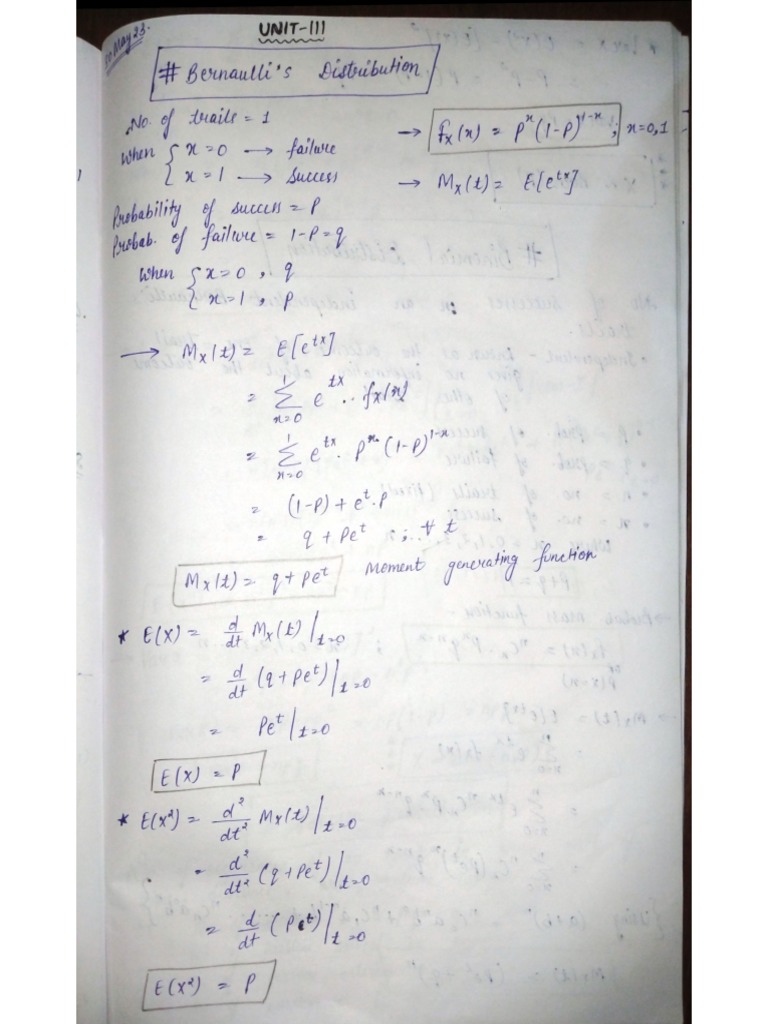 UNIT-III
May 23.
# Bernaulli's Distribution
No. of trails = 1
→ fx(x) = p^x (1-p)^1-x ; x=0,1
when { x=0 → failure
x=1 → success
→ Mx(t) = E[e^tx]
Probability of success = P
Probab. of failure = 1-P=q
when { x=0, q
x=1, p
→ Mx(t) = E[e^tx]
= 1 Σ x=0 e^tx .. fx(x)
= 1 Σ x=0 e^tx . p^x. (1-p)^1-x
= (1-p) + e^t.p
= q + pe^t ;. ∀ t
Mx(t) = q+pe^t Moment generating function
* E(X) = d/dt Mx(t) |t=0
= d/dt (q+pe^t) |t=0
= pe^t |t=0
E(X) = P
* E(X²) = d²/dt² Mx(t) |t=0
= d²/dt² (q+pe^t) |t=0
= d/dt (pe^t) |t=0
E(X²) = P